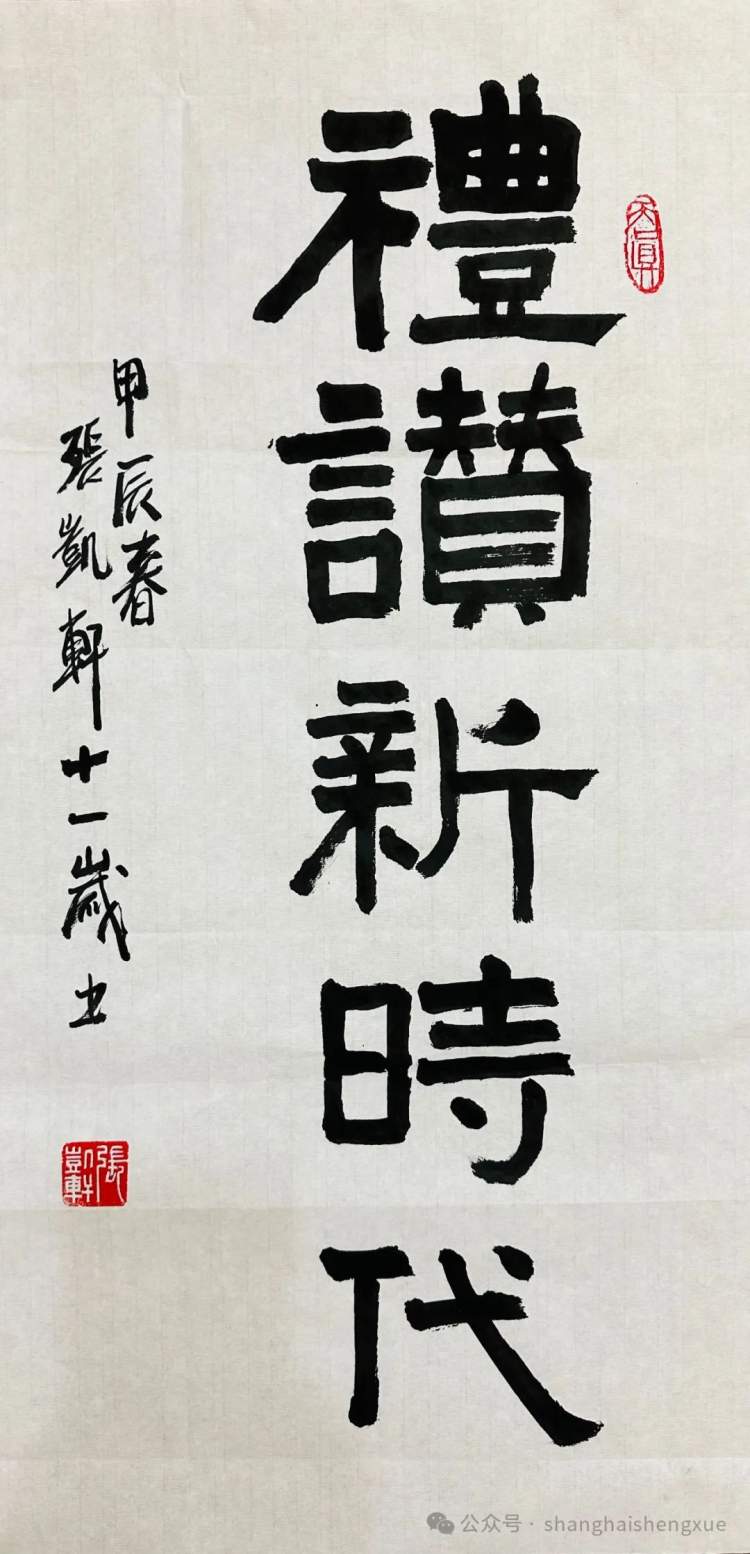 禮讃新時代
甲辰春
張凱軒十一歲书
張凱軒
公众号·shanghaishengxue